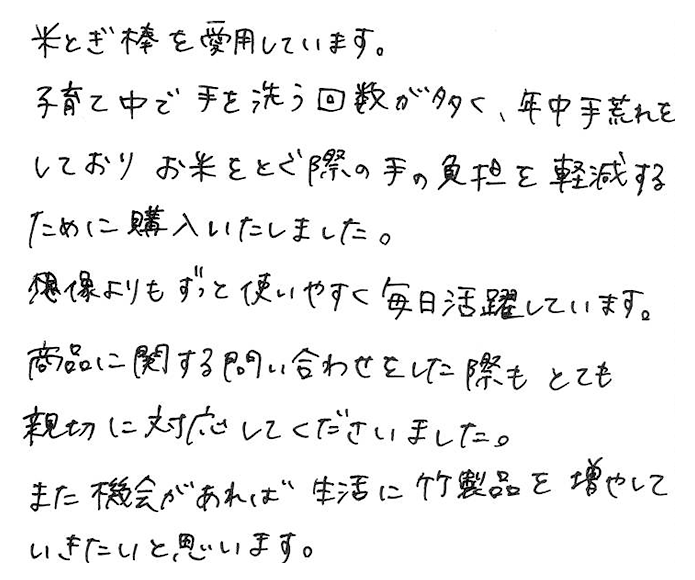 米とぎ棒を愛用しています。
子育て中で手を洗う回数が多く、年中手荒れを
しておりお米をとぐ際の手の負担を軽減する
ために購入いたしました。
想像よりもずっと使いやすく毎日活躍しています。
商品に関する問い合わせをした際もとても
親切に対応してくださいました。
また機会があれば生活に竹製品を増やして
いきたいと思います。